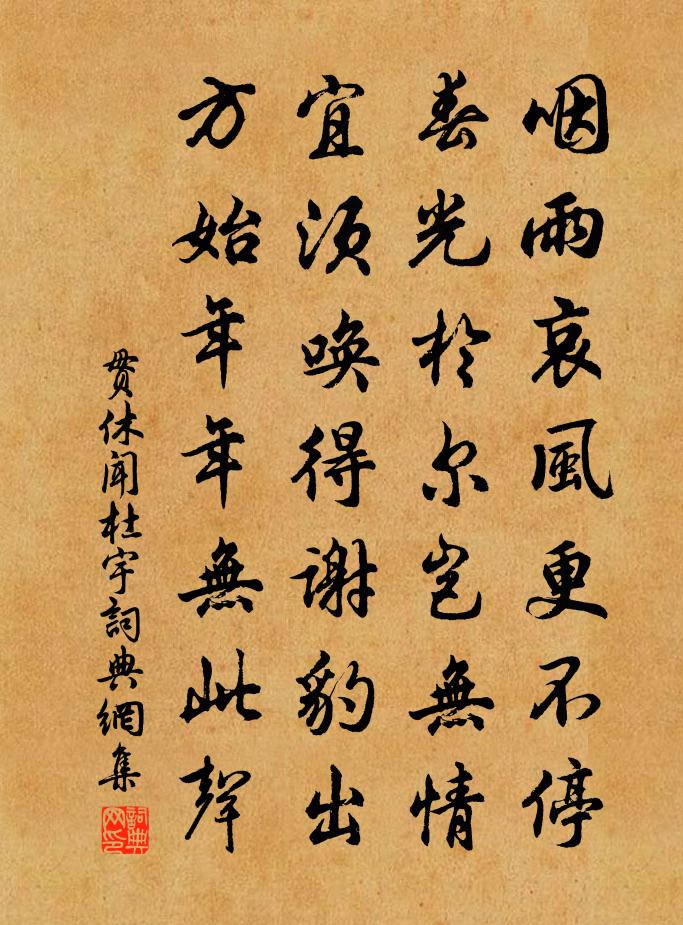 咽雨哀風更不停
春光於尔豈無情
宜須喚得謝豹出
方始年年無此聲
貫休聞杜宇詞典網集
詞典
网印